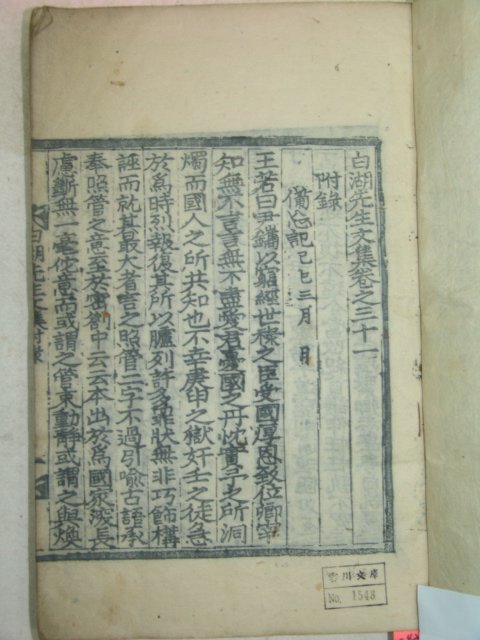 白湖先生文集卷之三十一
附錄
備忘記 己巳三月 日
王若曰尹鑴以窮經世務之臣受國厚恩致位卿宰
知無不言言無不盡愛君憂國之丹忱實予之所洞
燭而國人之所共知也不幸庚申之獄奸士之徒急
於爲時烈報復其所以臚列許多罪狀無非巧飾構
誣而就其最大者言之照管二字不過引喩古語承
奉照管之意至於密劄中云云本出於爲國家深長
慮斷無一毫他意而或謂之管束動靜或謂之與煥
白湖先生文集附錄
一
雲川文庫
No. 1548